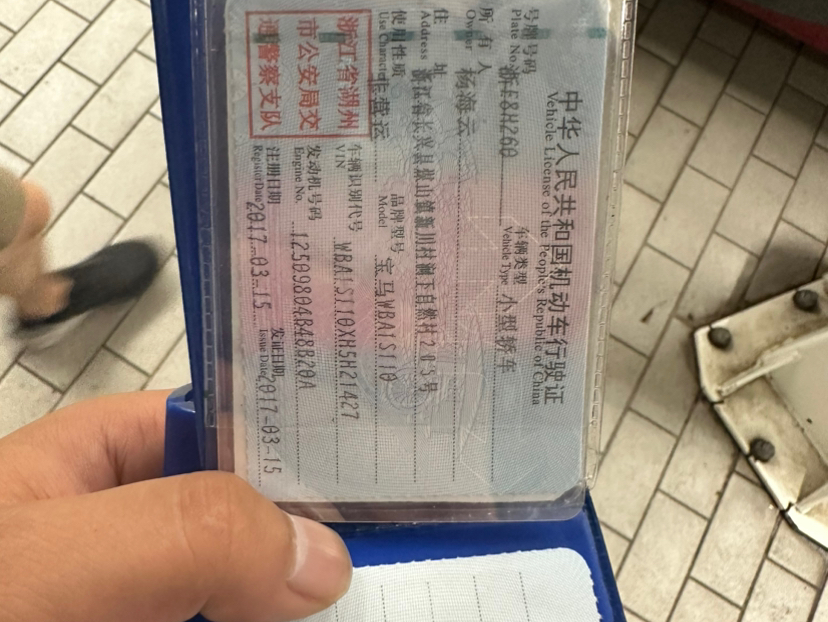 中华人民共和国机动车行驶证
Vehicle License of the People's Republic of China
号牌号码 浙E8H260 车辆类型 小型轿车
Plate No. Vehicle Type
所有人 杨海云
Owner
住址 浙江省长兴县煤山镇新川村涧下自然村205号
Address
使用性质 非营运 品牌型号 宝马WBA1S110
Use Character Model
浙江省湖州
市公安局交
通警察支队
车辆识别代号 WBA1S110XH5H21427
VIN
发动机号码 12509804B48B20A
Engine No.
注册日期 2017-03-15 发证日期 2017-03-15
Register Date Issue Date